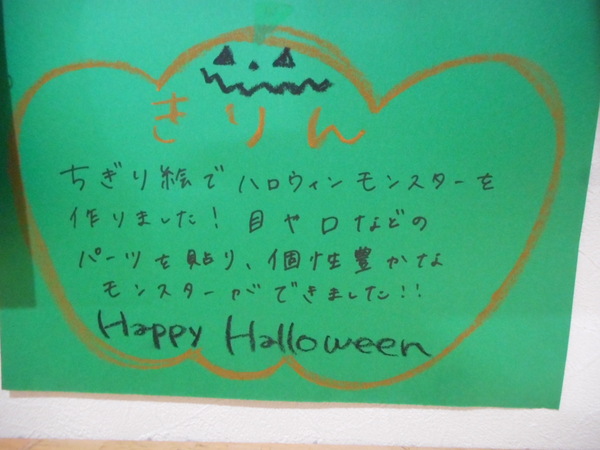 きりん
ちぎり絵でハロウィンモンスターを
作りました！目や口などの
パーツを貼り、個性豊かな
モンスターができました!!
Happy Halloween